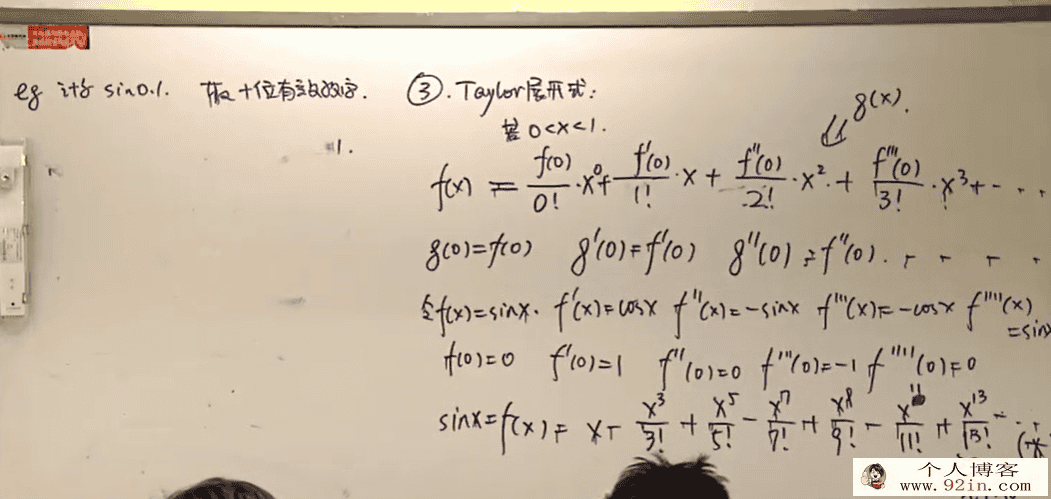 eg 计算 sin0.1. 取十位有效数字.
③. Taylor展开式:
若 0<x<1.
g(x).
f(x) = f(0)/0! ·x⁰+ f'(0)/1! ·x + f''(0)/2! ·x² + f'''(0)/3! ·x³+ · · ·
g(0)=f(0) g'(0)=f'(0) g''(0)=f''(0). . . . .
令f(x)=sinx. f'(x)=cosx f''(x)=-sinx f'''(x)=-cosx f''''(x)
=sinx
f(0)=0 f'(0)=1 f''(0)=0 f'''(0)=-1 f''''(0)=0
sinx=f(x)= x- x³/3! + x⁵/5! - x⁷/7! + x⁹/9! - x¹¹/11! + x¹³/13! - · · ·
个人博客
www.92in.com